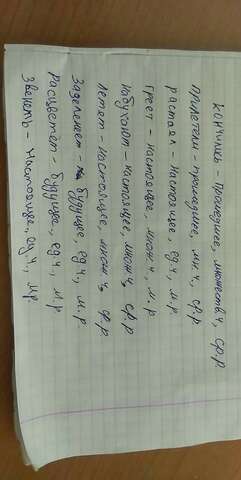 кончились - прошедшее, множеств ч, ср.р
прилетели - прошедшее, мн.ч, ср.р
растаял - настоящее, ед.ч, м.р
греет - настоящее, множ.ч, м.р
набухают - настоящее, множ.ч, ср.р
летят - настоящее, множ.ч, ср.р
Зазеленеет - будущее, ед.ч, м.р
Расцветёт - будущее, ед.ч, м.р
Звенеть - настоящее, ед.ч, м.р